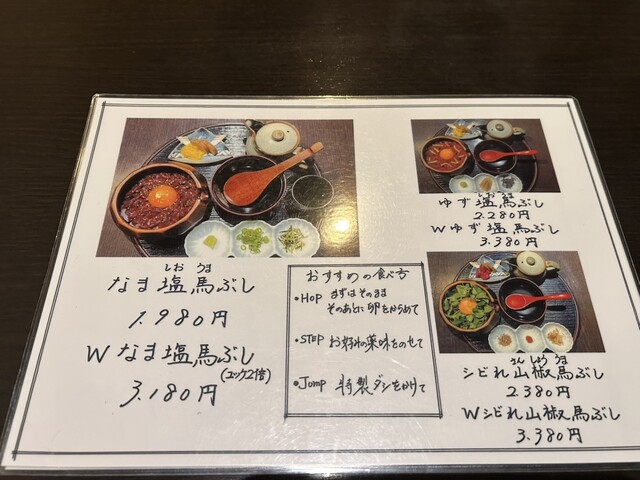 しお うま
なま塩馬ぶし
1.980円
Wなま塩馬ぶし
(ユッケ2倍)
3.180円
おすすめの食べ方
•HOP まずはそのまま
そのあとに卵をからめて
•STEP お好みの薬味をのせて
•Jump 特製ダシをかけて
しおうま
ゆず塩馬ぶし
2.280円
Wゆず塩馬ぶし
3.380円
さんしょううま
シビれ山椒馬ぶし
2.380円
Wシビれ山椒馬ぶし
3.380円